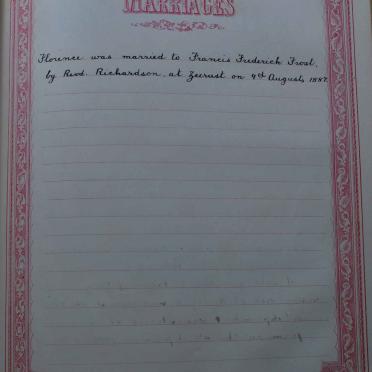 MARRIAGES
Florence was married to Francis Frederick Frost,
by Revd. Richardson, at Zeerust on 4th August, 1887.